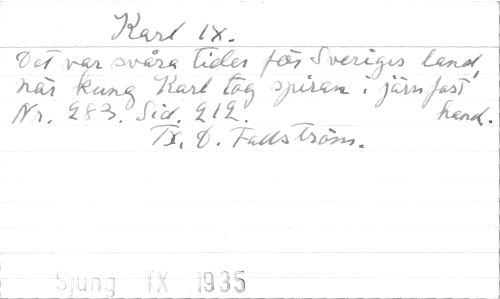 Karl IX.
Det var svåra tider för Sveriges land,
när kung Karl tog spiran i järnfast
hand.
Nr. 283. Sid. 212.
Tx. D. Fallström.
Sjung IX 1935